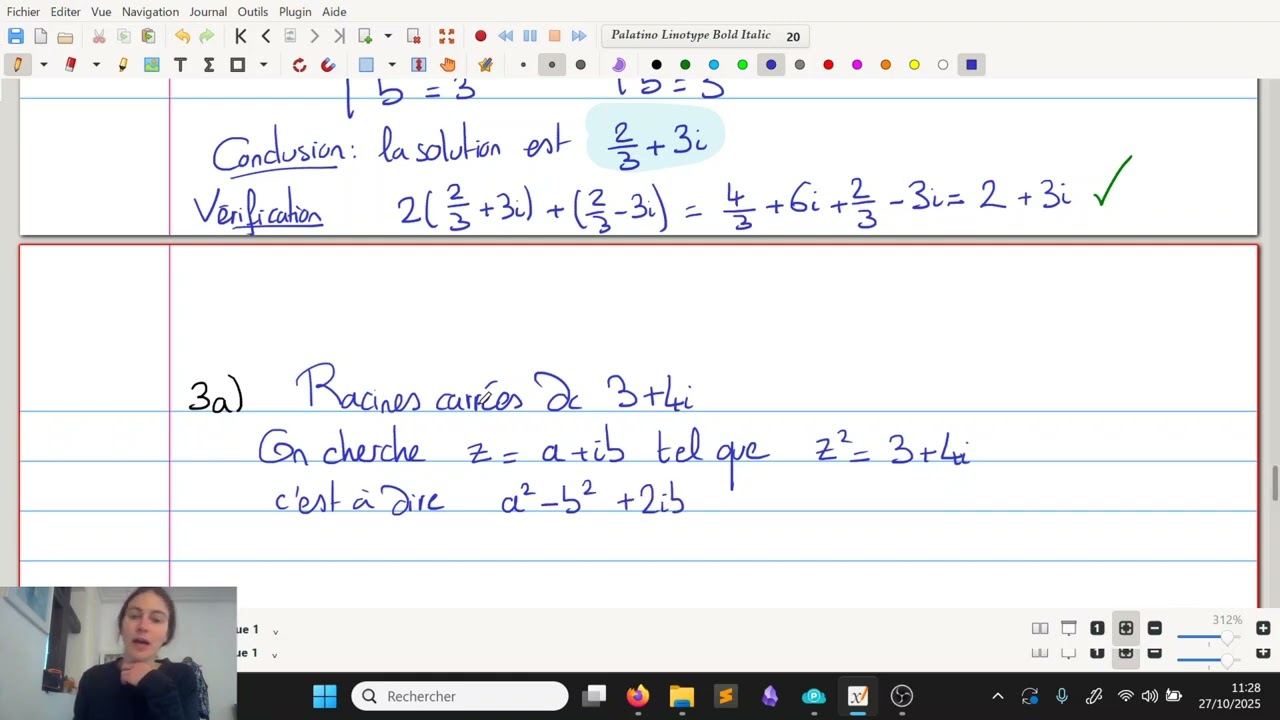 Fichier Editer Vue Navigation Journal Outils Plugin Aide
Palatino Linotype Bold Italic 20
b = 3 b = 3
Conclusion: la solution est 2/3 + 3i
Vérification 2(2/3 + 3i) + (2/3 - 3i) = 4/3 + 6i + 2/3 - 3i = 2 + 3i ✓
3a) Racines carrées de 3+4i
On cherche z = a+ib tel que z² = 3+4i
c'est à dire a² - b² + 2ib
que 1
ue 1
312%
Rechercher
11:28
27/10/2025